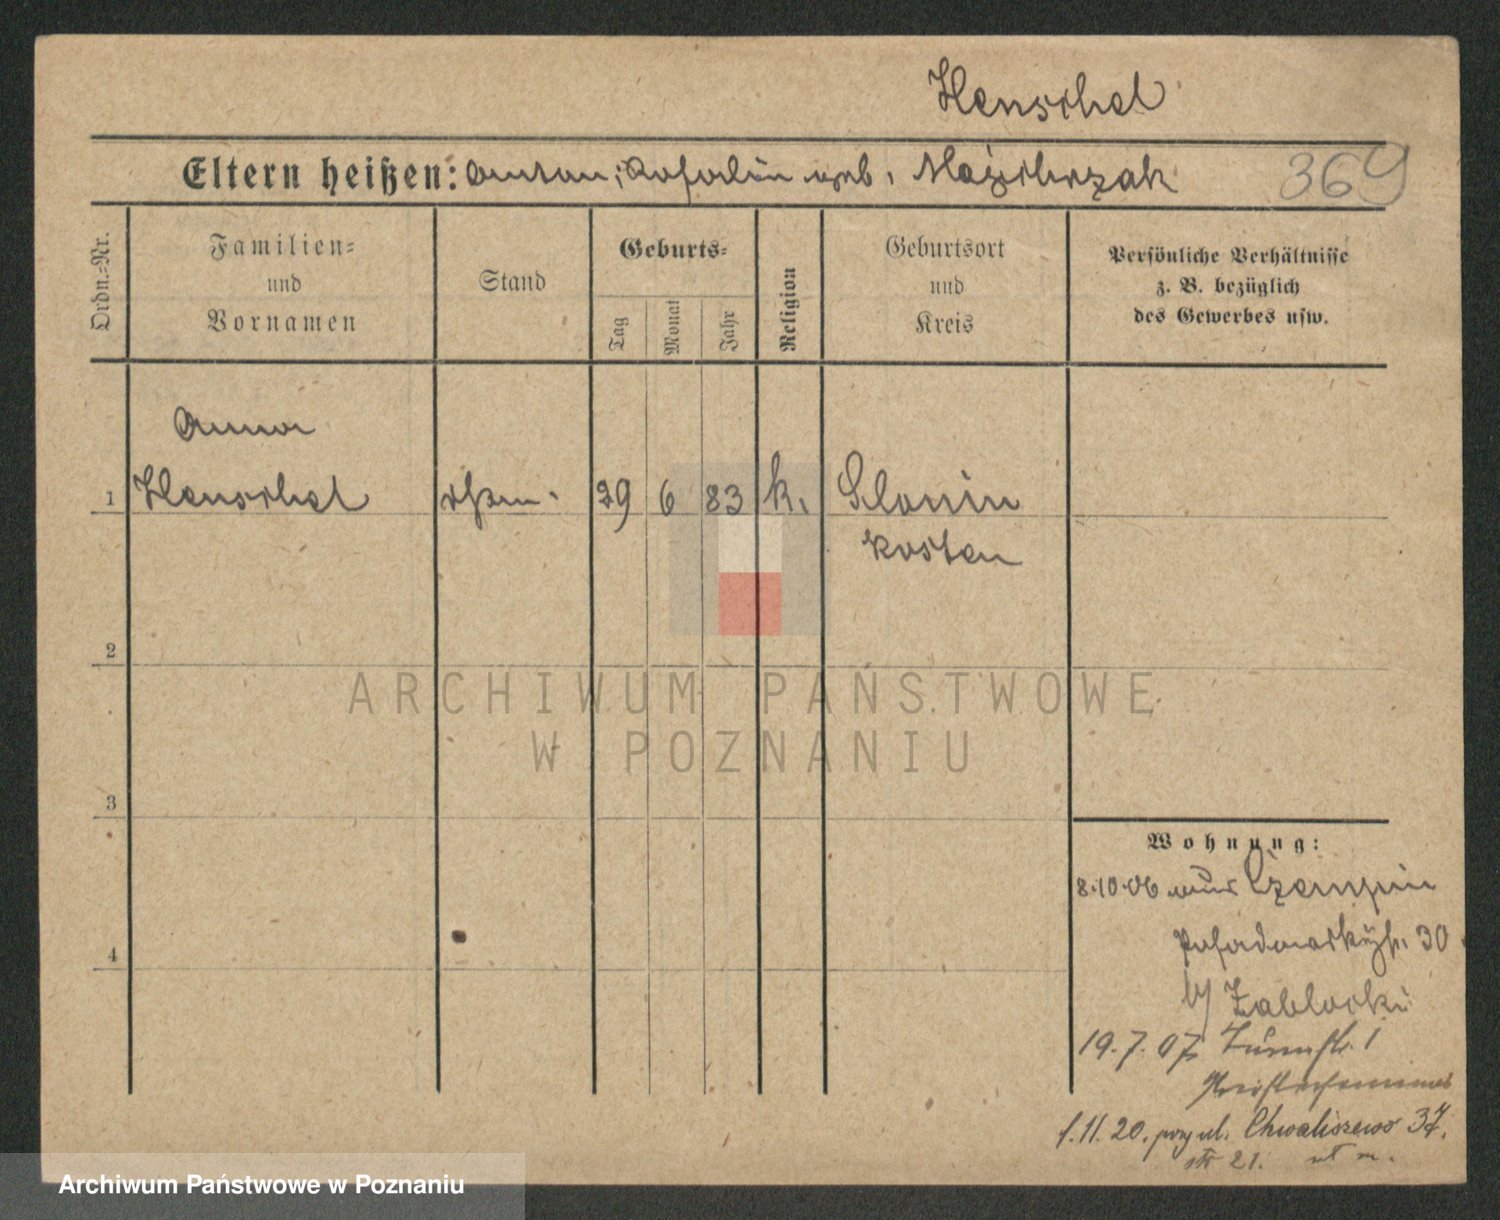 Henschel
Eltern heißen: Anton, geb. Majchrzak
369
Ordn.-Nr.
Familien-
und
Vornamen
Stand
Geburts-
Tag
Monat
Jahr
Religion
Geburtsort
und
Kreis
Persönliche Verhältnisse
z. B. bezüglich
des Gewerbes usw.
Anna
1 Henschel 29 6 83 k. Slonin
Kosten
2
ARCHIWUM PAŃSTWOWE
W POZNANIU
3
Wohnung:
8.10.06 aus Czempin
30
4
b/ Zablocki
19.7.07 1
1.11.20. przy ul. Chwaliszewo 37.
21.
Archiwum Państwowe w Poznaniu